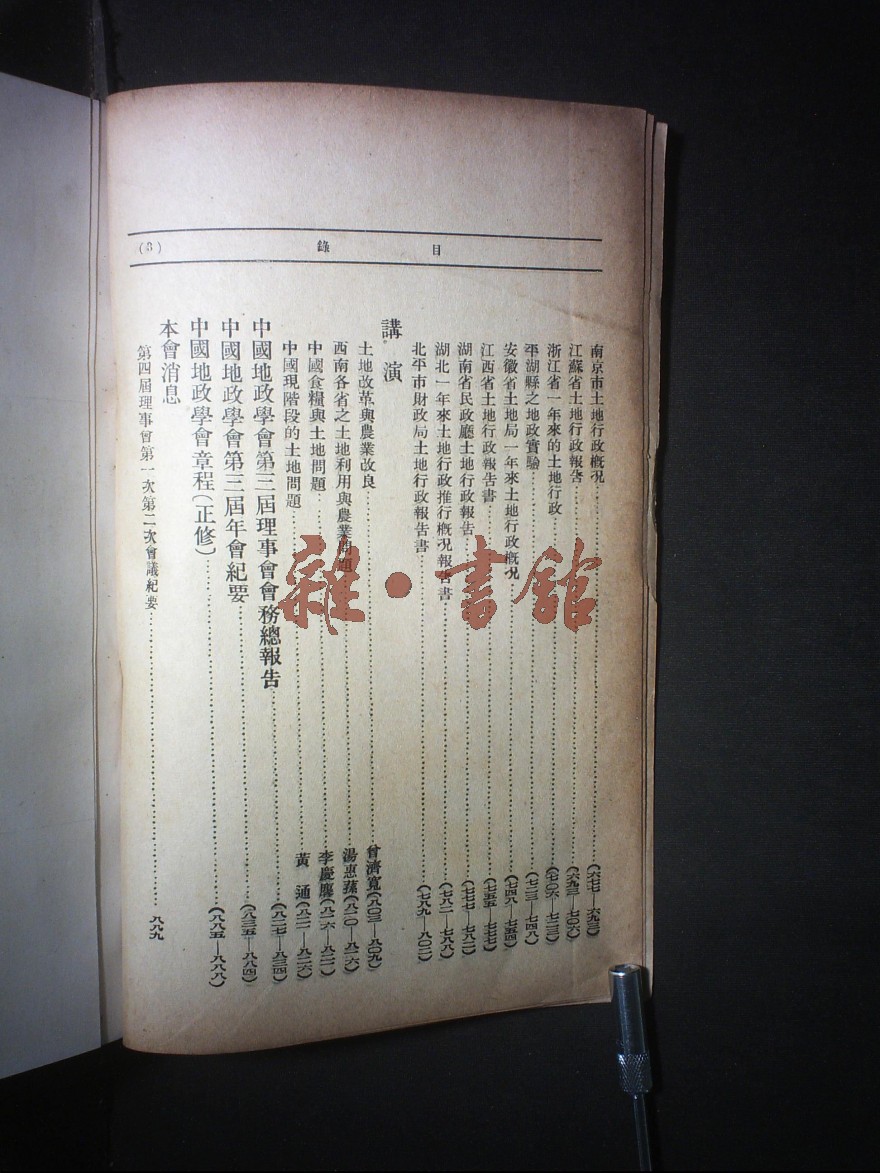 目錄 (3)
南京市土地行政概況……(六七七—六九三)
江蘇省土地行政報告……(六九三—七〇六)
浙江省一年來的土地行政……(七〇六—七二三)
平湖縣之地政實驗……(七二三—七四八)
安徽省土地局一年來土地行政概況……(七四八—七五四)
江西省土地行政報告書……(七五五—七七七)
湖南省民政廳土地行政報告……(七七七—七八二)
湖北一年來土地行政推行概况報告書……(七八二—七八八)
北平市財政局土地行政報告書……(七八九—八〇二)
講演
土地改革與農業改良……曾濟寬(八〇三—八〇九)
西南各省之土地利用與農業問題……湯惠蓀(八一〇—八一六)
中國食糧與土地問題……李慶麐(八一六—八二一)
中國現階段的土地問題……黃通(八二一—八二六)
中國地政學會第三屆理事會會務總報告……(八二七—八三四)
中國地政學會第三屆年會紀要……(八三五—八八四)
中國地政學會章程(正修)……(八八五—八八八)
本會消息
第四屆理事會第一次第二次會議紀要……八八九
雜·書館